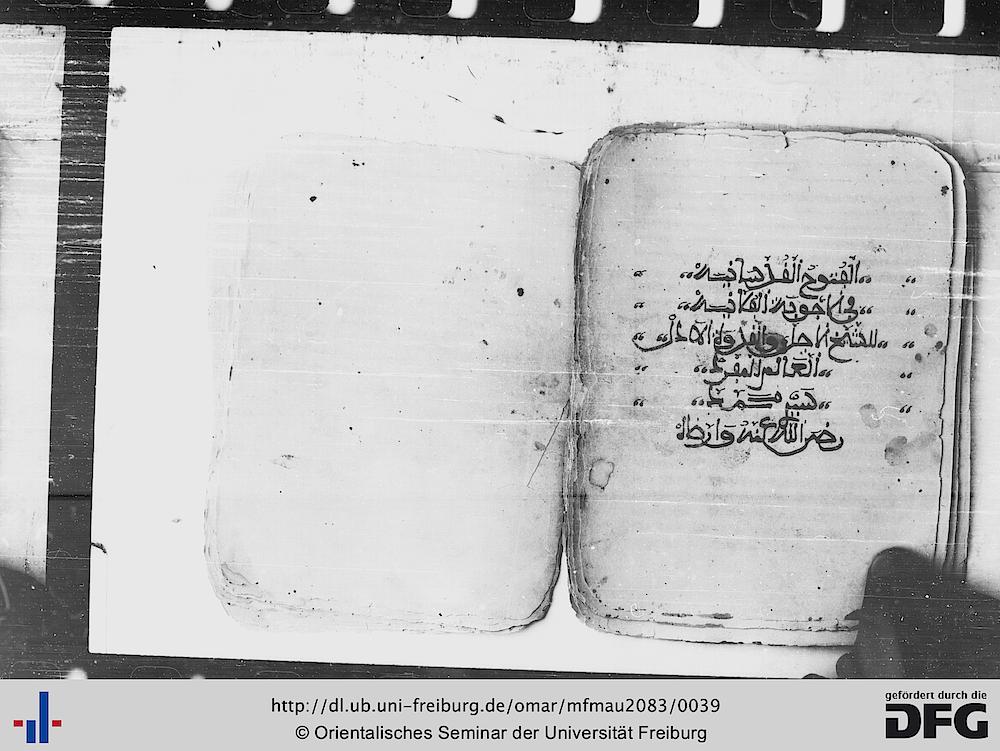 الفتوح القدسانية
في الاجوبة القانية
للشيخ الاجل والقدوة الامثل
العالم المقرئ
سيد محمد
رضي الله عنه وارضاه
http://dl.ub.uni-freiburg.de/omar/mfmau2083/0039
© Orientalisches Seminar der Universität Freiburg
gefördert durch die
DFG